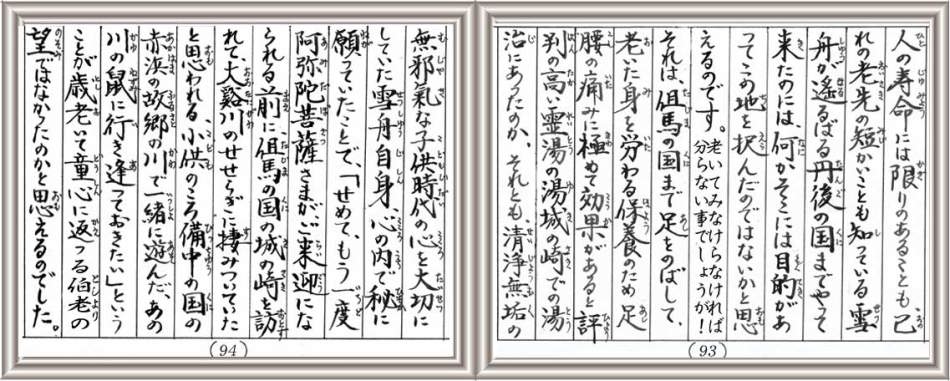 人の寿命には限りのあることも、己
れの老先の短かいことも知っている雪
舟が遙るばる丹後の国までやって
来たのには、何かそこには目的があ
ってこの地を択んだのではないかと思
えるのです。老いてみなけらなければ
分らない事でしょうが！
それは、但馬の国まで足をのばして、
老いた身を労わる保養のため足
腰の痛みに極めて効果があると評
判の高い霊湯の湯城の崎での湯
治にあったのか、それとも、清浄無垢の
(93)
無邪氣な子供時代の心を大切に
していた雪舟自身、心の内で秘に
願っていたことで、「せめて、もう一度
阿弥陀菩薩さまが、ご来迎にな
られる前に但馬の国の城の崎を訪
れて、大谿川のせせらぎに棲みついていた
と思われる、小供のころ備中の国の
赤浜の故郷の川で一緒に遊んだ、あの
川の鼠に行き逢っておきたい」という
ことが歳老いて童心に返つる伯老の
望ではなかったのかと思えるのでした。
(94)